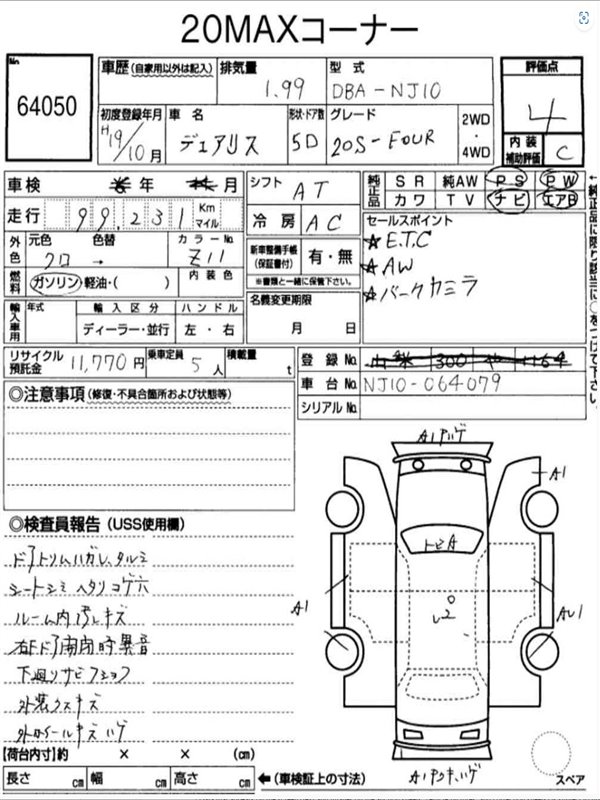 20MAXコーナー
No.
64050
車歴(自家用以外は記入)
排気量
1.99
型式
DBA-NJ10
評価点
4
初度登録年月
H19/10月
車名
デュアリス
形状・ドア数
5D
グレード
20S-FOUR
2WD
・
4WD
内装
補助評価
C
車検 年 月
シフト
AT
純正品
SR 純AW PS PW
カワ TV ナビ エアB
走行 99,231 Km
マイル
冷房
AC
セールスポイント
★E.T.C
★AW
★バークカミラ
外色
元色 色替
クロ→
カラーNo.
Z11
新車整備手帳
(保証書付)
有・無
※書類と一緒に保管下さい。
燃料
ガソリン・軽油・( )
内装色
名義変更期限
月 日
輸入車用
年式
輸入区分
ハンドル
ディーラー・並行
左・右
リサイクル
預託金
11,770円
乗車定員
5人
積載量
t
登録No.
300
車台No.
NJ10-064079
シリアルNo.
←純正品に限り該当に○をつけて下さい。
◎注意事項(修復・不具合箇所および状態等)
◎検査員報告(USS使用欄)
ドアトリムハガレ、タルミ
シートシミヘタリコゲ穴
ルーム内汚レキズ
右Fドア開閉時異音
下廻リサビアショブ
外装ウスキズ
A1
トビA
A1
【荷台内寸】約 × × (cm)
長さ cm 幅 cm 高さ cm ←(車検証上の寸法)
スペア